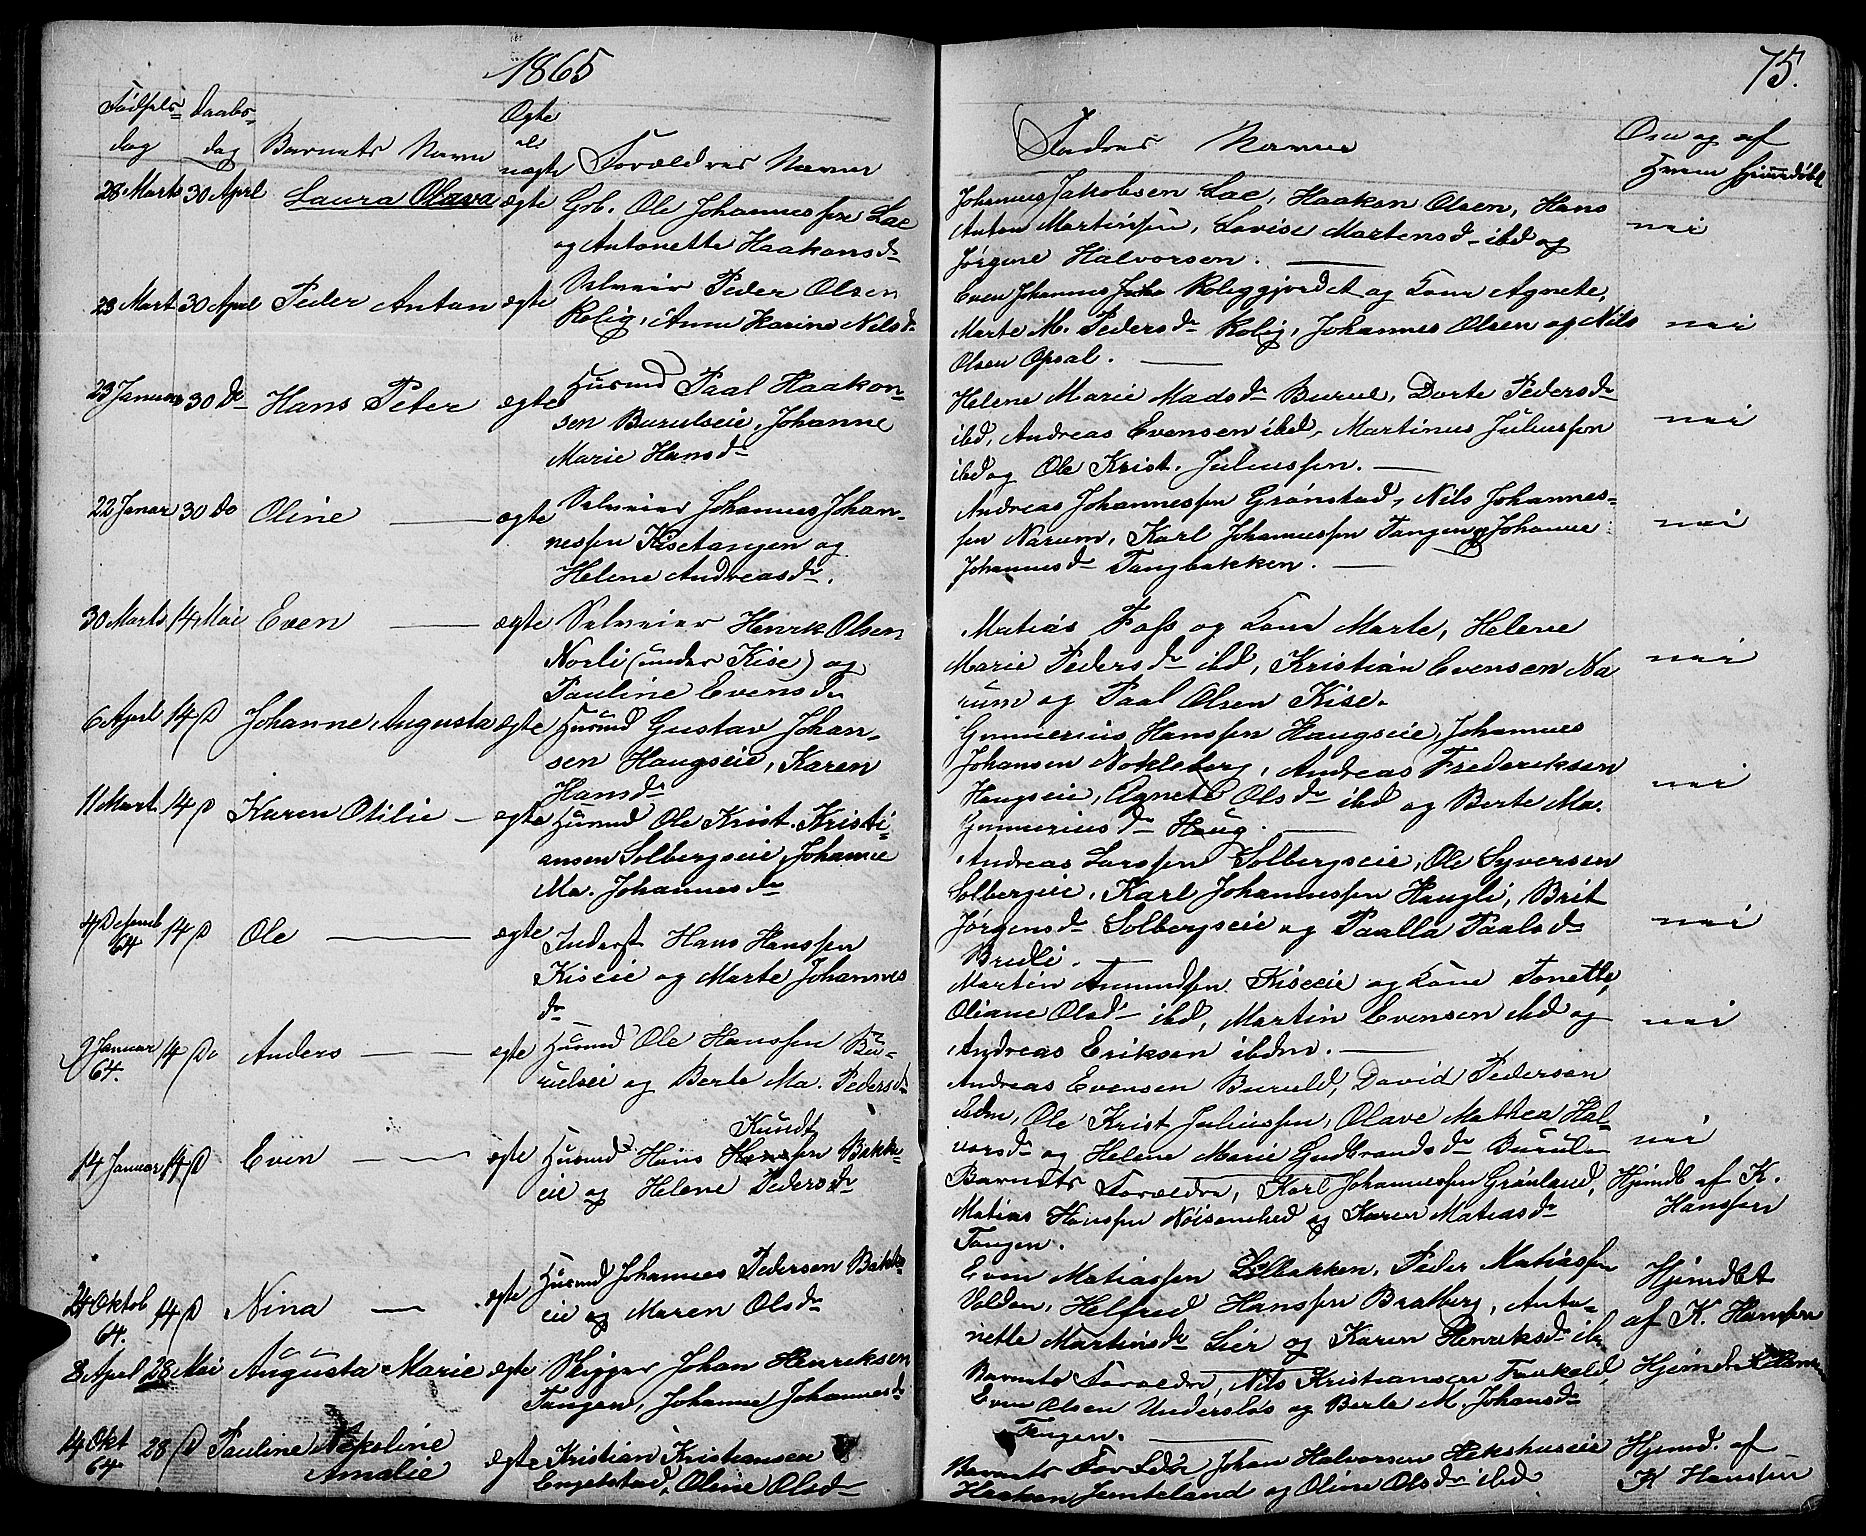 1865
Födsels- Daabs- Ægte
dag dag Barnets Navn uægte Forældres Navne
28 Marts 30 April Laura Olava ægte Gdb. Ole Johannessen Lae
og Antonette Haakonsd
23 Mart 30 April Peder Anton ægte Selveier Peder Olsen
Rolig, Anne Karine Nilsd
23 Januar 30 Do Hans Peter ægte Husmd Paal Haakon-
sen Burulseie, Johanne
Marie Hansd
22 Janar 30 Do Oline ægte Selveier Johannes Johan-
nessen Kisetangen og
Helene Andreasd.
30 Marts 14 Mai Even ægte Selveier Henrik Olsen
Norli (under Kise) og
Pauline Evensd
6 April 14 D Johanne Augusta ægte Husmd Gustav Johan-
sen Haugseie, Karen
Hansd
11 Mart. 14 D Karen Otilie ægte Husmd Ole Krist. Kristi-
ansen Solbergseie, Johanne
Ma. Johannesd
4 Decemb 64 14 D Ole ægte Inderst Hans Hanssen
Kiseie og Marte Johannes
d
9 Januar 64. 14 Do Anders ægte Husmd Ole Hanssen Bu-
rulseie og Berte Ma. Pedersd
Knudt
14 Januar 14 D Even ægte Husmd Hans Hanssen Bakke-
eie og Helene Pedersd
24 Oktob 64. 14 D Nina ægte Husmd Johannes Pedersen Bakke
eie og Maren Olsd
8 April 28 Mai Augusta Marie ægte Skigger Johan Henriksen
Tangen, Johanne Johannesd
14 Okt 64 28 D Pauline Nekoline
Amalie ægte Kristian Kristiansen
Engelstad, Oline Olsd
75.
Fadres Navne Om og af
Hvem hjemdöbt
Johannes Jakobsen Lae, Haakon Olsen, Hans
Anton Martinsen, Lovise Martensd ibd og nei
Jørgine Halvorsen.
Even Johannes Roliggjordet og Kone Agnete,
Marte M. Pedersd Rolig, Johannes Olsen og Nils nei
Olsen Opsal.
Helene Marie Madsd Burul, Dorte Pedersd
ibd, Andreas Evensen ibd, Martinus Juliussen nei
ibd og Ole Krist. Juliussen.
Andreas Johannessen Grønstad, Nils Johannes-
sen Narum, Karl Johannessen Tangen og Johanne nei
Johannesd Tangbakken.
Matias Foss og Kone Marte, Helene
Marie Pedersd ibd, Kristian Evensen Na nei
rum og Paal Olsen Kise.
Gunnerius Hanssen Haugseie, Johannes
Johansen Nokleberg, Andreas Frederiksen
Haugseie, Agnete Olsd ibd og Berte Ma. nei
Gunneriusd Haug.
Andreas Larssen Solbergseie, Ole Syversen
Solbergeie, Karl Johannessen Haugli, Brit
Jørgensd Solbergseie og Paalla Paalsd nei
Brudli.
Martin Amundsen Kiseeie og Kone Tonette,
Oliane Olsd ibd, Martin Evensen ibd og nei
Andreas Eriksen ibdm.
Andreas Evensen Buruld, David Pedersen
ibdm, Ole Krist Juliussen, Olave Mathea Hal-
vorsd og Helene Marie Gudbrandsd Burul nei
Barnets Forældre, Karl Johannessen Grönland, Hjemdb af K.
Matias Hanssen Nøisomhed og Karen Matiasd Hanssen
Tangen.
Even Matiassen Lilbakken, Peder Matiassen Hjemdbt
Volden, Helfred Hanssen Bratberg, Anto- af K. Hanssen
nette Martinsd Lier og Karen Henriksd ib
Barnets Forældre, Nils Kristiansen Hjemdb
Even Olsen Underslös og Berte M. Johansd
Tangen.
Barnets Forældr Johan Halvorsen Hekshuseie Hjemd. af
Haaken Jemteland og Oline Olsd ibd K Hanssen